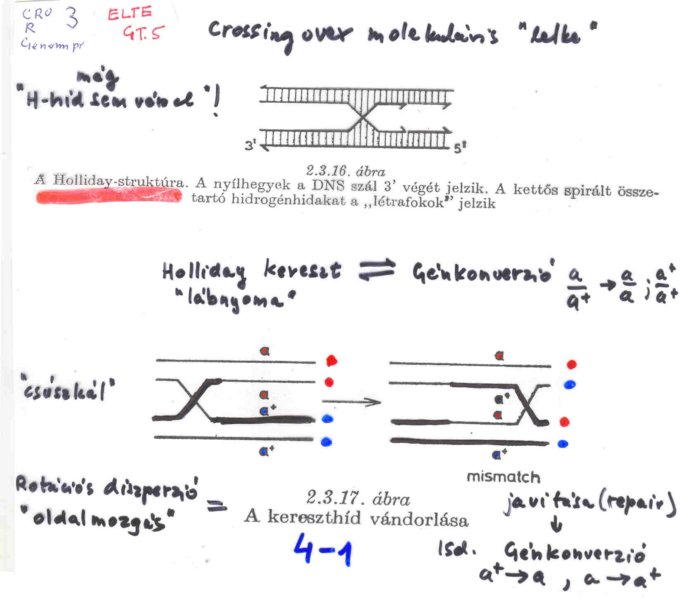 CRO 3
R
Genompr
ELTE
GT.5
Crossing over molekuláris "lelke"
még
"H-híd sem vész el"!
3'
5'
2.3.16. ábra
A Holliday-struktúra. A nyílhegyek a DNS szál 3' végét jelzik. A kettős spirált össze-
tartó hidrogénhidakat a „létrafokok" jelzik
Holliday kereszt ⇌ Génkonverzió a/a⁺ → a/a ; a⁺/a⁺
"lábnyoma"
"csúszkál"
a
a
a⁺
a⁺
a
a⁺
a
a⁺
mismatch
Rotációs diszperzió =
"oldalmozgás"
2.3.17. ábra
A kereszthíd vándorlása
4-1
javítása (repair)
↓
lsd. Génkonverzió
a⁺→a , a→a⁺